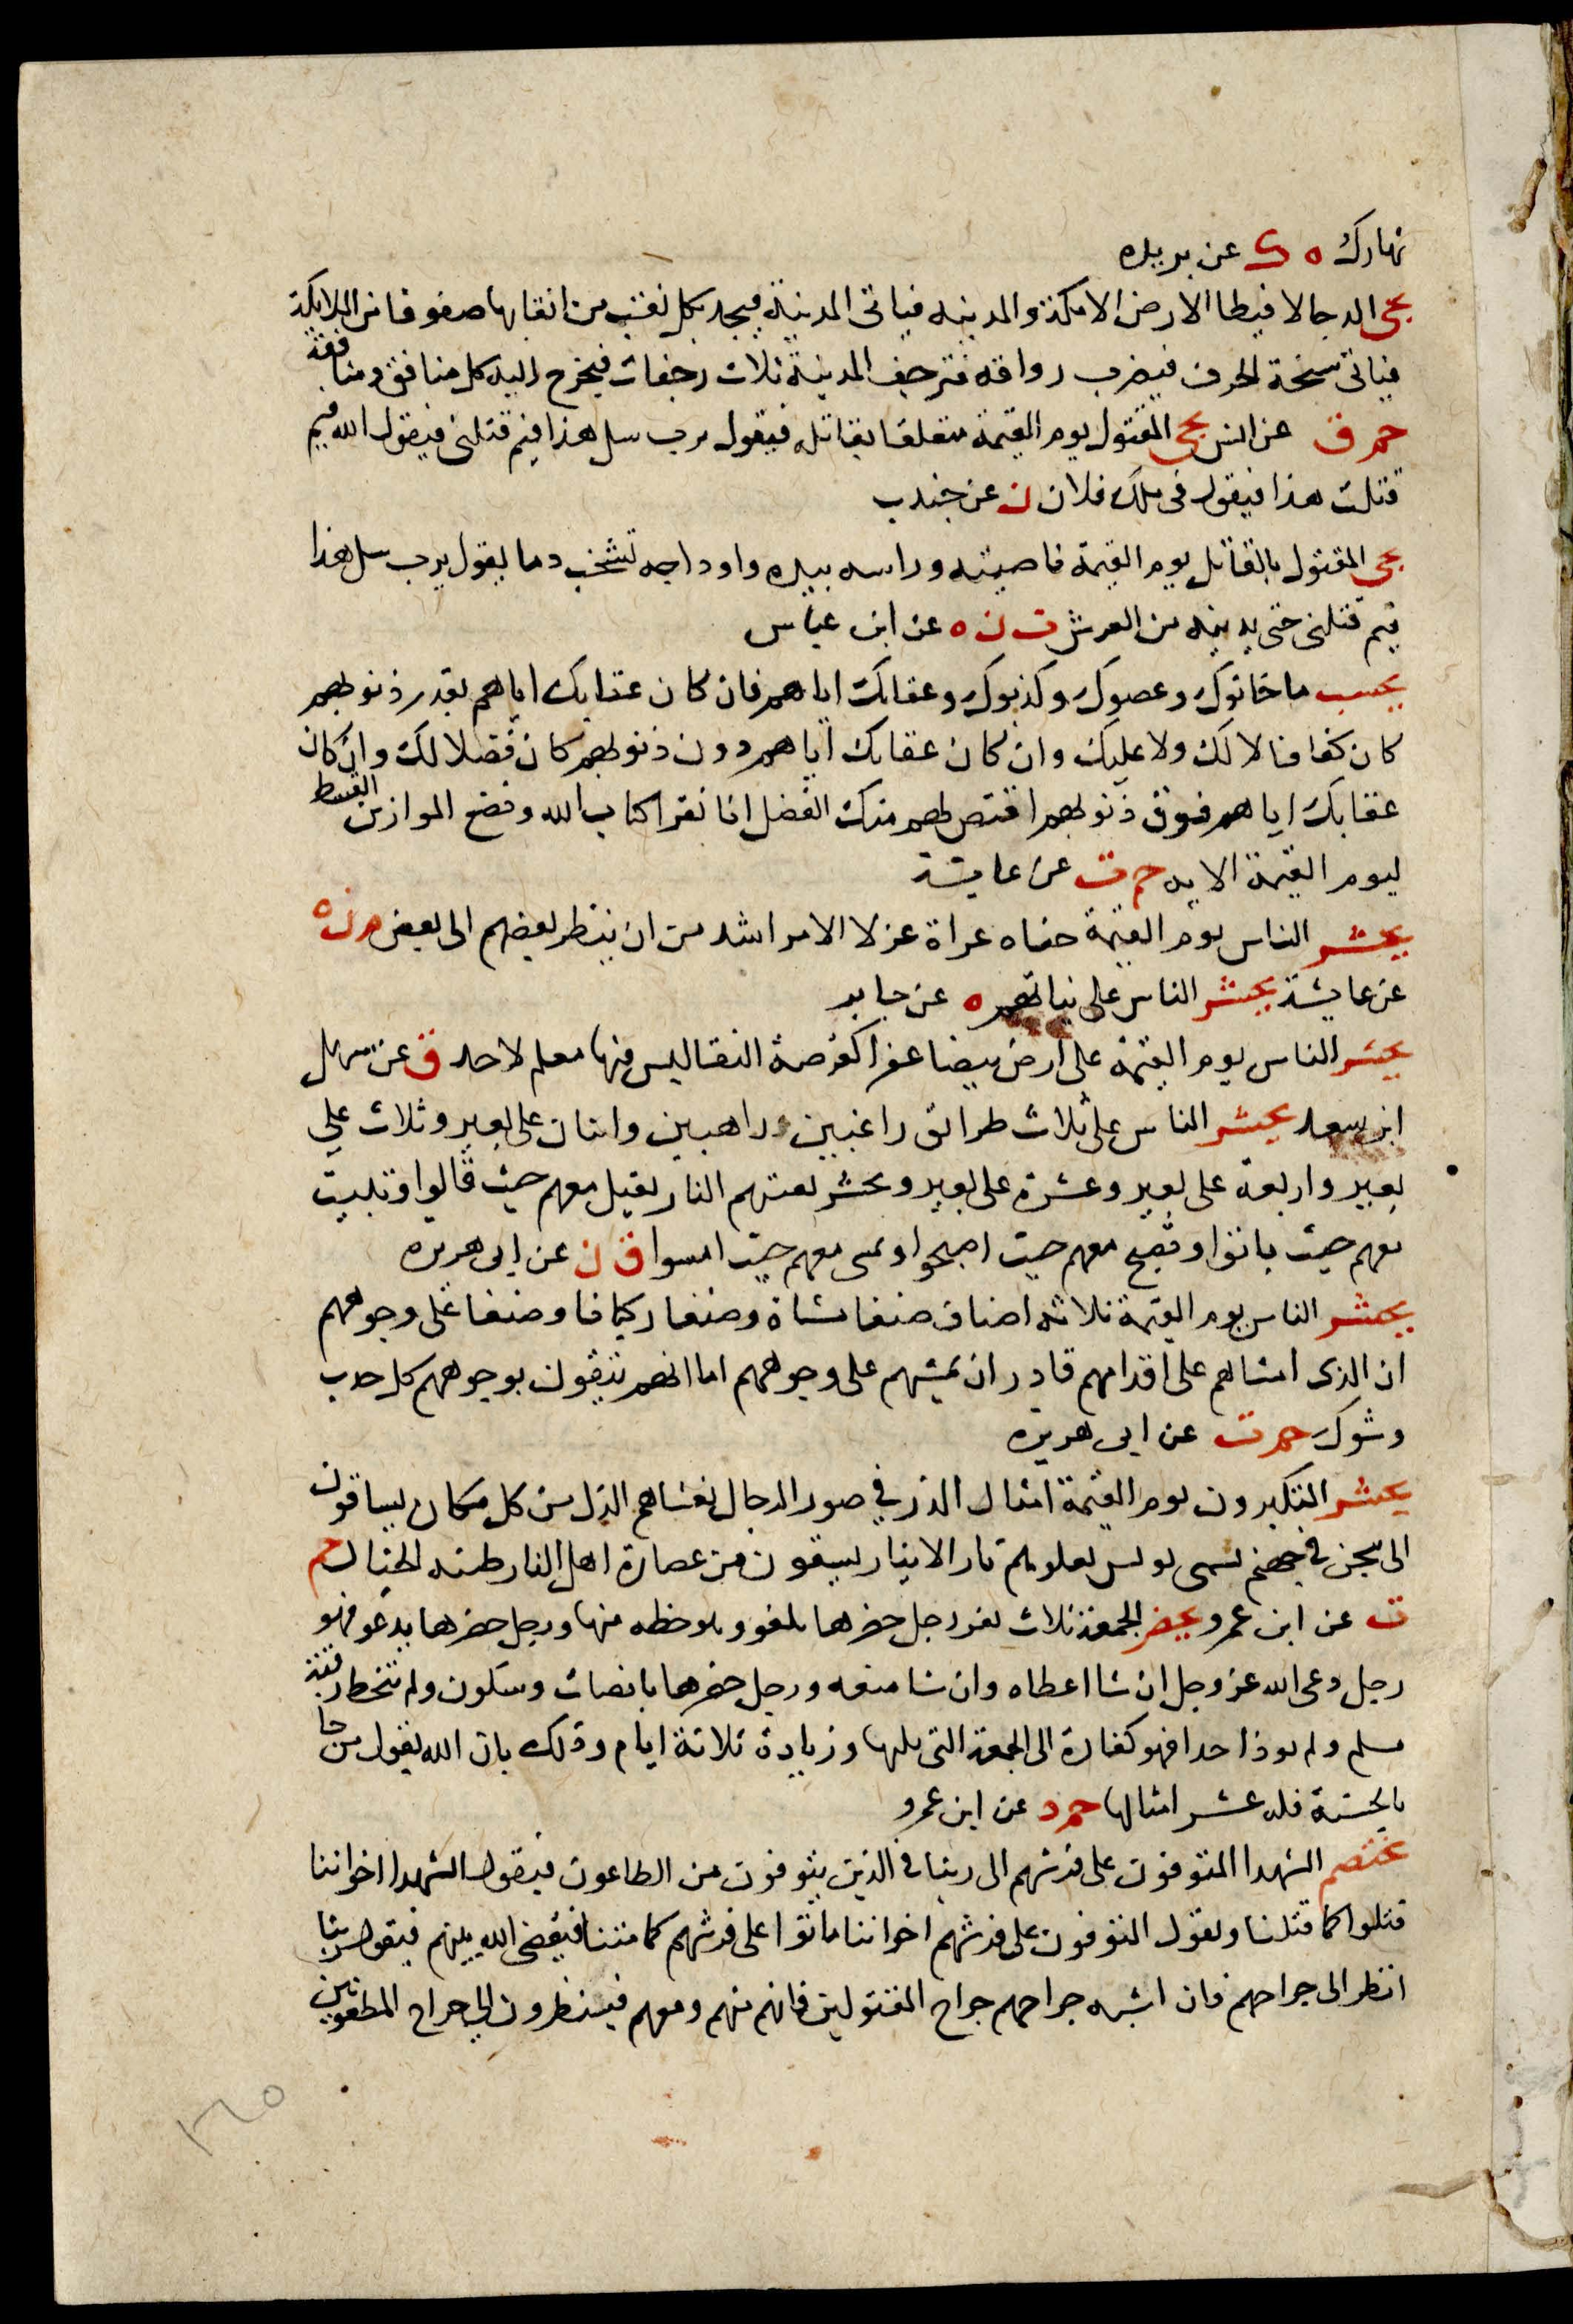 نهارك ه ك عن بريده
يجي الدجال فيطا الارض الا مكة والمدينه فياتى المدينة فيجد بكل نقب من انقابها صفوفا من الملايكة
فياتى سبخة الجرف فيضرب رواقه فترجف المدينة ثلاث رجفات فيخرج اليه كل منافق ومنافقة
حم ق عن انس يجي المقتول يوم القيمة متعلقا بقاتله فيقول يرب سل هذا فيم قتلنى فيقول الله فيم
قتلت هذا فيقول فى ملك فلان ن عن جندب
يجي المقتول بالقاتل يوم القيمة ناصيته وراسه بيده واوداجه تشخب دما يقول يرب سل هذا
فيم قتلنى حتى يدينه من العرش ت ن ه عن ابن عباس
يحسب ما خانوك وعصوك وكذبوك وعقابك اياهم فان كان عقابك اياهم بقدر ذنوبهم
كان كفافا لا لك ولا عليك وان كان عقابك اياهم دون ذنوبهم كان فضلا لك وان كان
عقابك اياهم فوق ذنوبهم اقتص لهم منك الفضل اما تقرا كتاب الله ونضع الموازين القسط
ليوم القيمة الايه حم ت عن عايشة
يحشر الناس يوم القيمة حفاه عراة غرلا الامر اشد من ان ينظر بعضهم الى بعض م ن ه
عن عايشة يحشر الناس على نياتهم ه عن جابر
يحشر الناس يوم القيمة على ارض بيضا عفرا كقرصة النقا ليس فيها معلم لاحد ق عن سهل
ابن سعد يحشر الناس على ثلاث طرائق راغبين وراهبين واثنان على بعير وثلاث على
بعير واربعة على بعير وعشرة على بعير ويحشر بقيتهم النار تقيل معهم حيث قالوا وتبيت
معهم حيث باتوا وتصبح معهم حيث اصبحوا وتمسى معهم حيث امسوا ق ن عن ابى هريره
يحشر الناس يوم القيمة ثلاثه اصناف صنفا مشاة وصنفا ركبانا وصنفا على وجوههم
ان الذى امشاهم على اقدامهم قادر ان يمشيهم على وجوههم اما انهم يتقون بوجوههم كل حدب
وشوك حم ت عن ابى هريره
يحشر المتكبرون يوم القيمة امثال الذر في صور الرجال يغشاهم الذل من كل مكان يساقون
الى سجن في جهنم يسمى بولس يعلوهم نار الانيار يسقون من عصارة اهل النار طينه الخبال حم
ت عن ابن عمرو يحضر الجمعة ثلاث نفر رجل حضرها يلغو وهو حظه منها ورجل حضرها يدعو فهو
رجل دعى الله عز وجل ان شا اعطاه وان شا منعه ورجل حضرها بانصات وسكون ولم يتخط رقبة
مسلم ولم يوذ احدا فهو كفارة الى الجمعة التى يليها وزيادة ثلاثة ايام وذلك بان الله يقول من جا
بالحسنة فله عشر امثالها حم د عن ابن عمرو
يختصم الشهدا المتوفون على فرشهم الى ربنا فى الذين يتوفون من الطاعون فيقول الشهدا اخواننا
قتلوا كما قتلنا ويقول المتوفون على فرشهم اخواننا ماتوا على فرشهم كما متنا فيقضى الله بينهم فيقول ربنا
انظر الى جراحهم فان اشبه جراحهم جراح المقتولين فانهم منهم ومعهم فينظرون الى جراح المطعونين